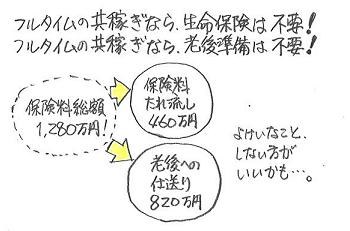 フルタイムの共稼ぎなら、生命保険は不要！
フルタイムの共稼ぎなら、老後準備は不要！
保険料総額
1,280万円！
保険料
たれ流し
460万円
老後への
仕送り
820万円
よけいなこと、
しない方が
いいかも…。